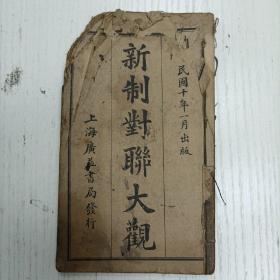 民國十年一月出版
新制對聯大觀
上海廣益書局發行